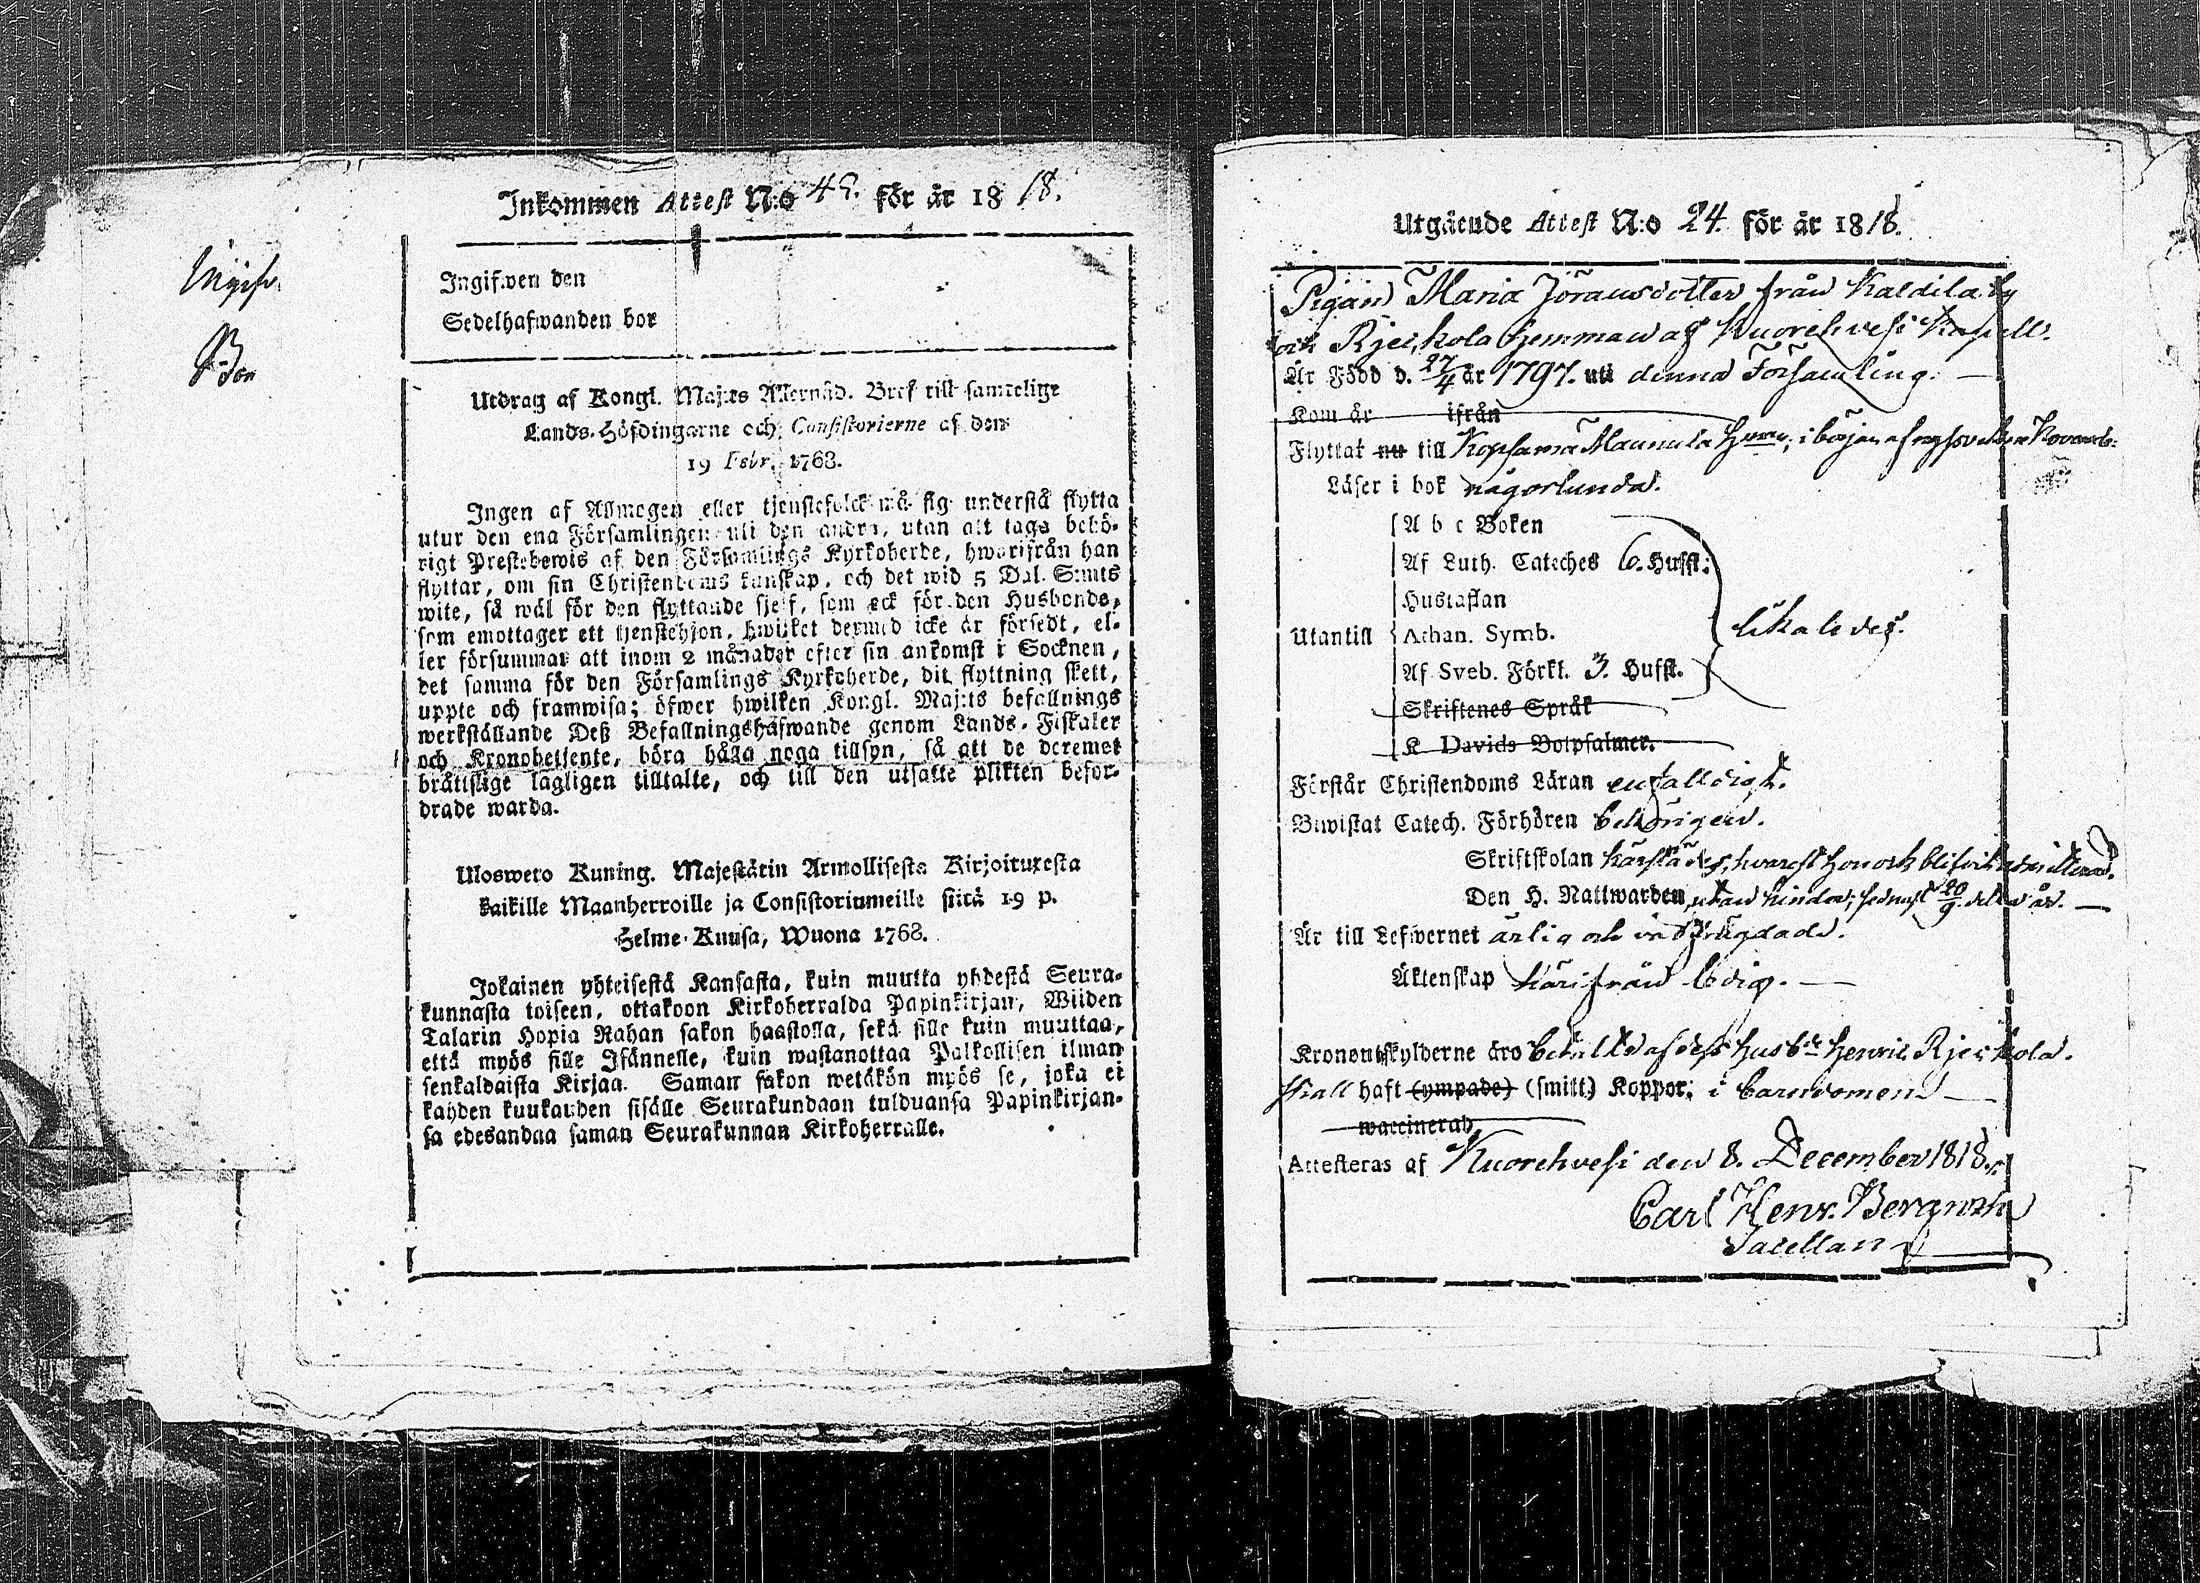 Inkommen Attest N:o 45. för år 1818.
Ingifwen den
Sedelhafwanden bor
Utdrag af Kongl. Maj:ts Allernåd. Bref till samtelige
Lands-Höfdingarne och Consistorierne af den
19 Febr. 1768.
Ingen af Allmogen eller tjenstefolck må sig understå flytta
utur den ena Församlingen uti den andra, utan att taga behö-
rigt Prestebewis af den Församlings Kyrkoherde, hwarifrån han
flyttar, om sin Christendoms kunskap, och det wid 5 Dal. S:mts
wite, så wäl för den flyttande sjelf, som ock för den Husbonde,
som emottager ett tjenstehjon, hwilket dermed icke är försedt, el-
ler försummar att inom 2 månader efter sin ankomst i Socknen,
det samma för den Församlings Kyrkoherde, dit flyttning skett,
uppte och framwisa; öfwer hwilken Kongl. Maj:ts befallnings
werkställande Deß Befallningshafwande genom Lands-Fiskaler
och Kronobetjente, böra hålla noga tillsyn, så att de deremot
bråttslige lagligen tilltalte, och till den utsatte plikten befor-
drade warda.
Ulosweto Kuning. Majestätin Armollisesta Kirjoituxesta
kaikille Maanherroille ja Consistoriumeille siitä 19 p.
Helme-Kuusa, Wuona 1768.
Jokainen yhteisestä Kansasta, kuin muutta yhdestä Seura-
kunnasta toiseen, ottakoon Kirkoherralda Papinkirjan, Wiiden
Talarin Hopia Rahan sakon haastolla, sekä sille kuin muuttaa,
että myös sille Isännelle, kuin wastanottaa Palkollisen ilman
senkaldaista Kirjaa. Saman sakon wetäkön myös se, joka ei
kahden kuukauden sisälle Seurakundaan tulduansa Papinkirjan-
sa edesandaa saman Seurakunnan Kirkoherralle.
Utgående Attest N:o 24. för år 1818.
Pigan Maria Jöransdotter från Kaldila by
och Rjeskola hemman af Kuorehvesi Kapell.
Är Född d. 27/4 år 1797. uti denna Församling.
Kom år ifrån
Flyttat nu till Kopsama Maunula i början af
Läser i bok någorlunda.
A b c Boken
Af Luth. Cateches 6. Hufst.
Hustaflan
Utantill Athan. Symb. likaledes.
Af Sveb. Förkl. 3. Hufst.
Skriftenes Språk
K Davids Botpsalmer.
Förstår Christendoms Läran enfalldigt.
Biwistat Catech. Förhören behörigen.
Skriftskolan härstädes, hvarest hon ock blifvit admitterad.
Den H. Nattwarden utan hinder; sednast 20/9. detta år.
Är till Lefwernet ärlig och välfrägdad.
Äktenskap härifrån ledig.
Kronoutskylderne äro betalte af dess husb:de Henric Rjeskola.
Skall haft (ympade) (smitt.) Koppor; i barndomen
waccinerad
Attesteras af Kuorehvesi den 8. December 1818.
Carl Henr. Bergroth
Sacellan